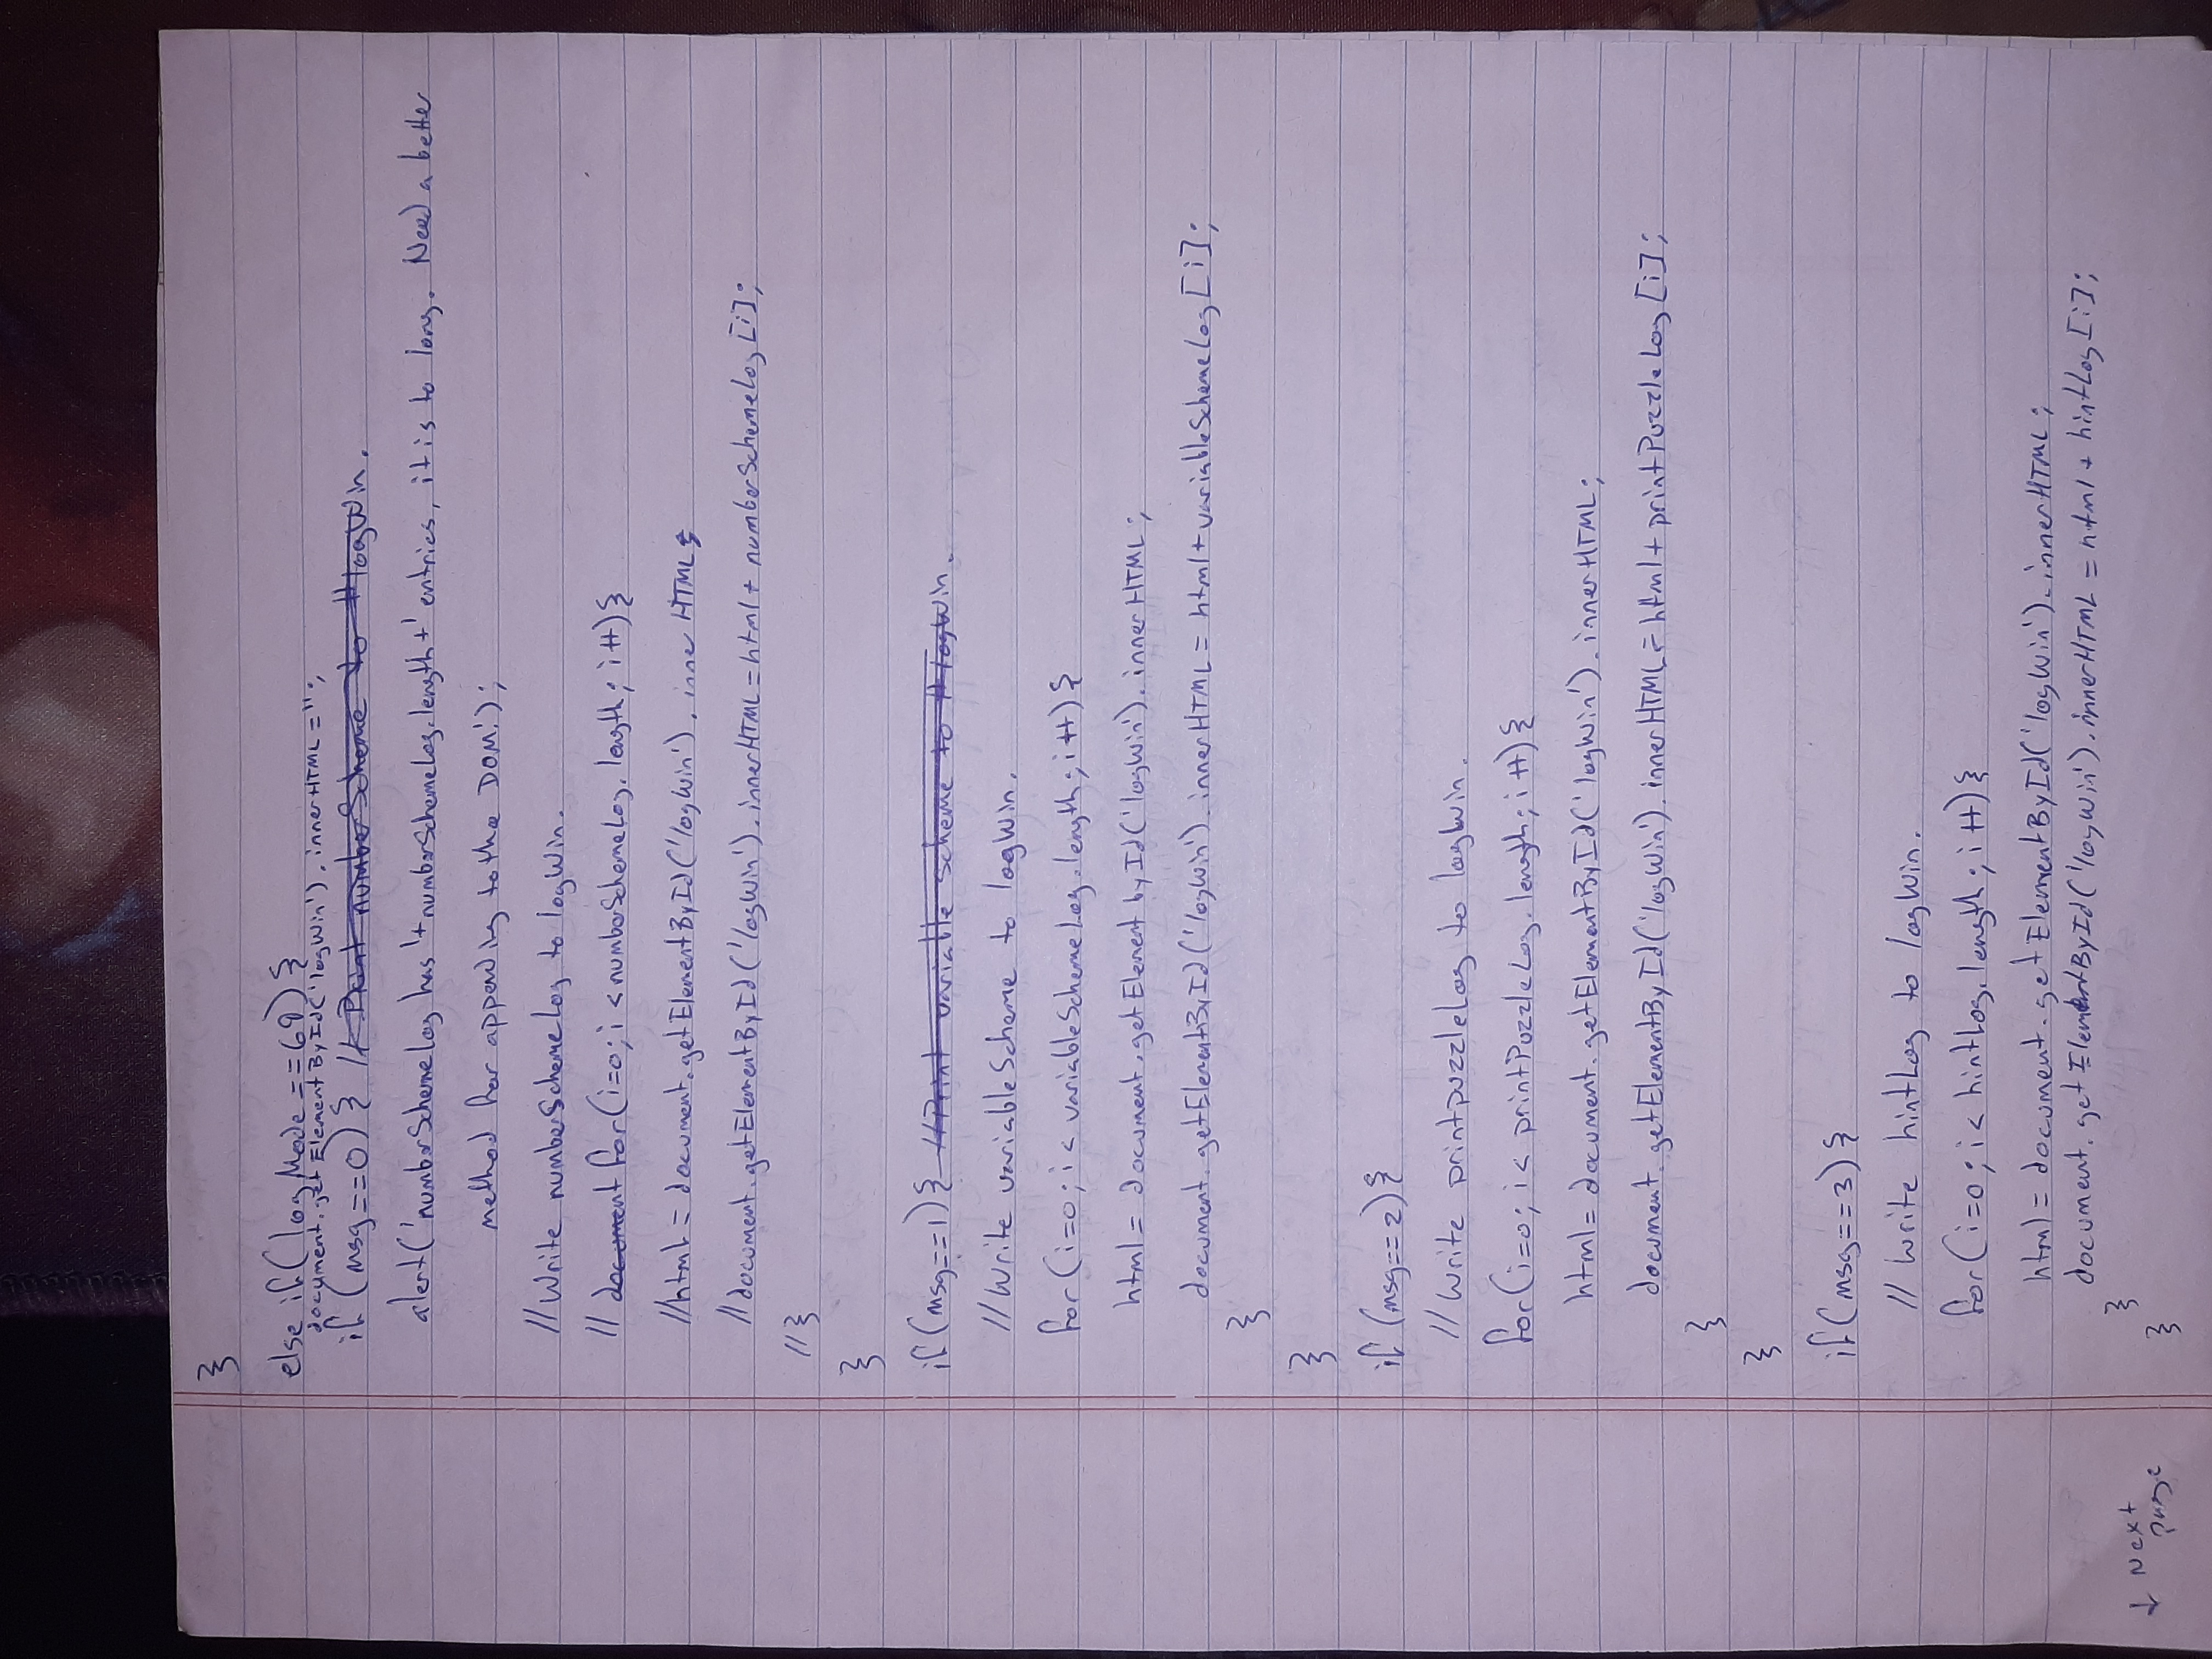 }
else if(logMode==69){
document.getElementById('logWin').innerHTML='';
if(msg==0){ // Print numberScheme to #logWin.
alert('numberSchemeLog has '+numberSchemeLog.length+' entries, it is to long. Need a better
method for appending to the DOM!');
//Write numberSchemeLog to logWin.
// document for(i=0;i<numberSchemeLog.length;i++){
//html = document.getElementById('logWin').innerHTML;
//document.getElementById('logWin').innerHTML=html+numberSchemeLog[i];
//}
}
if(msg==1){ //Print variable scheme to #logWin.
//Write variableScheme to logWin.
for(i=0;i<variableSchemeLog.length;i++){
html = document.getElementbyId('logWin').innerHTML;
document.getElementById('logWin').innerHTML = html+variableSchemeLog[i];
}
}
if(msg==2){
//Write printpuzzleLog to logWin.
for(i=0;i<printPuzzleLog.length;i++){
html=document.getElementById('logWin').innerHTML;
document.getElementById('logWin').innerHTML=html+printPuzzleLog[i];
}
}
if(msg==3){
// Write hintLog to logWin.
for(i=0;i<hintLog.length;i++){
html=document.getElementById('logWin').innerHTML;
document.getElementById('logWin').innerHTML = html + hintLog[i];
}
}
↓ Next
page